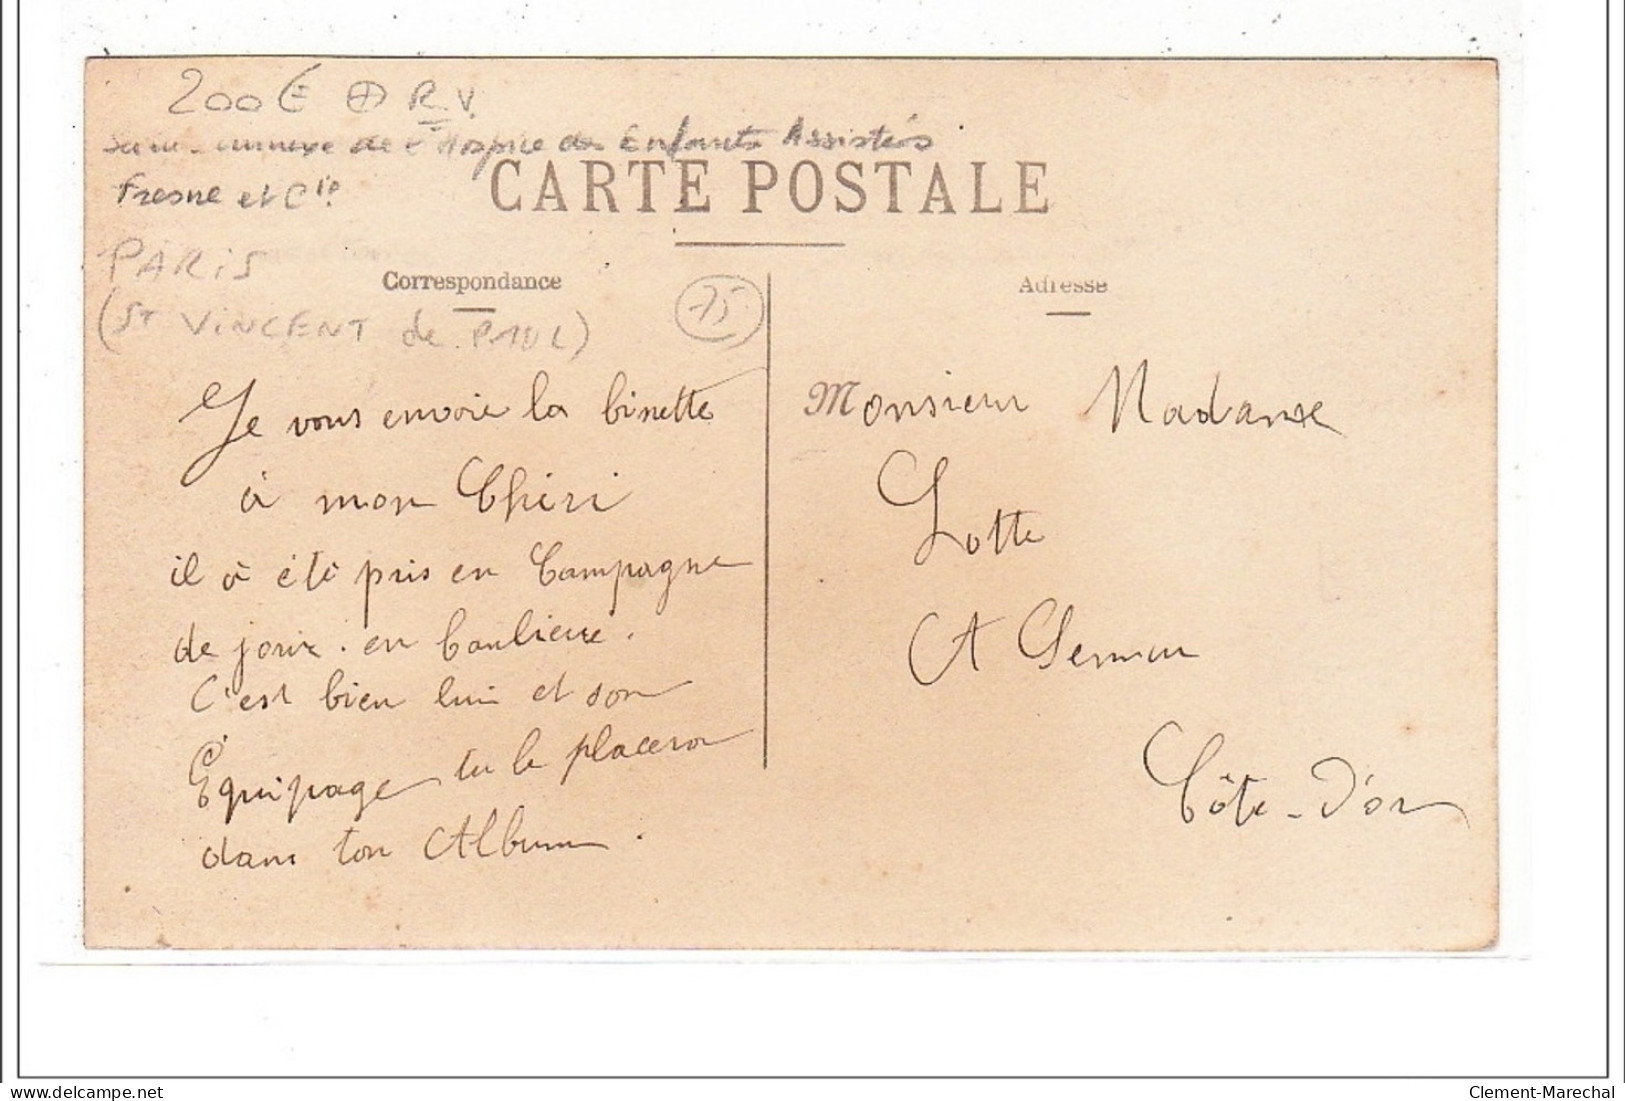 200€ ⊕ R.V.
annexe de l'Hospice des Enfants Assistés
Fresne et Cie
CARTE POSTALE
PARIS
Correspondance
Adresse
(St VINCENT de PAUL)
75
Je vous envoie la binette
à mon Chéri
il à été pris en Campagne
de jour. en banlieue.
C'est bien lui et son
Équipage tu le placera
dans ton Album.
Monsieur Madame
Lotte
A Semur
Côte-d'or
Clement-Marechal